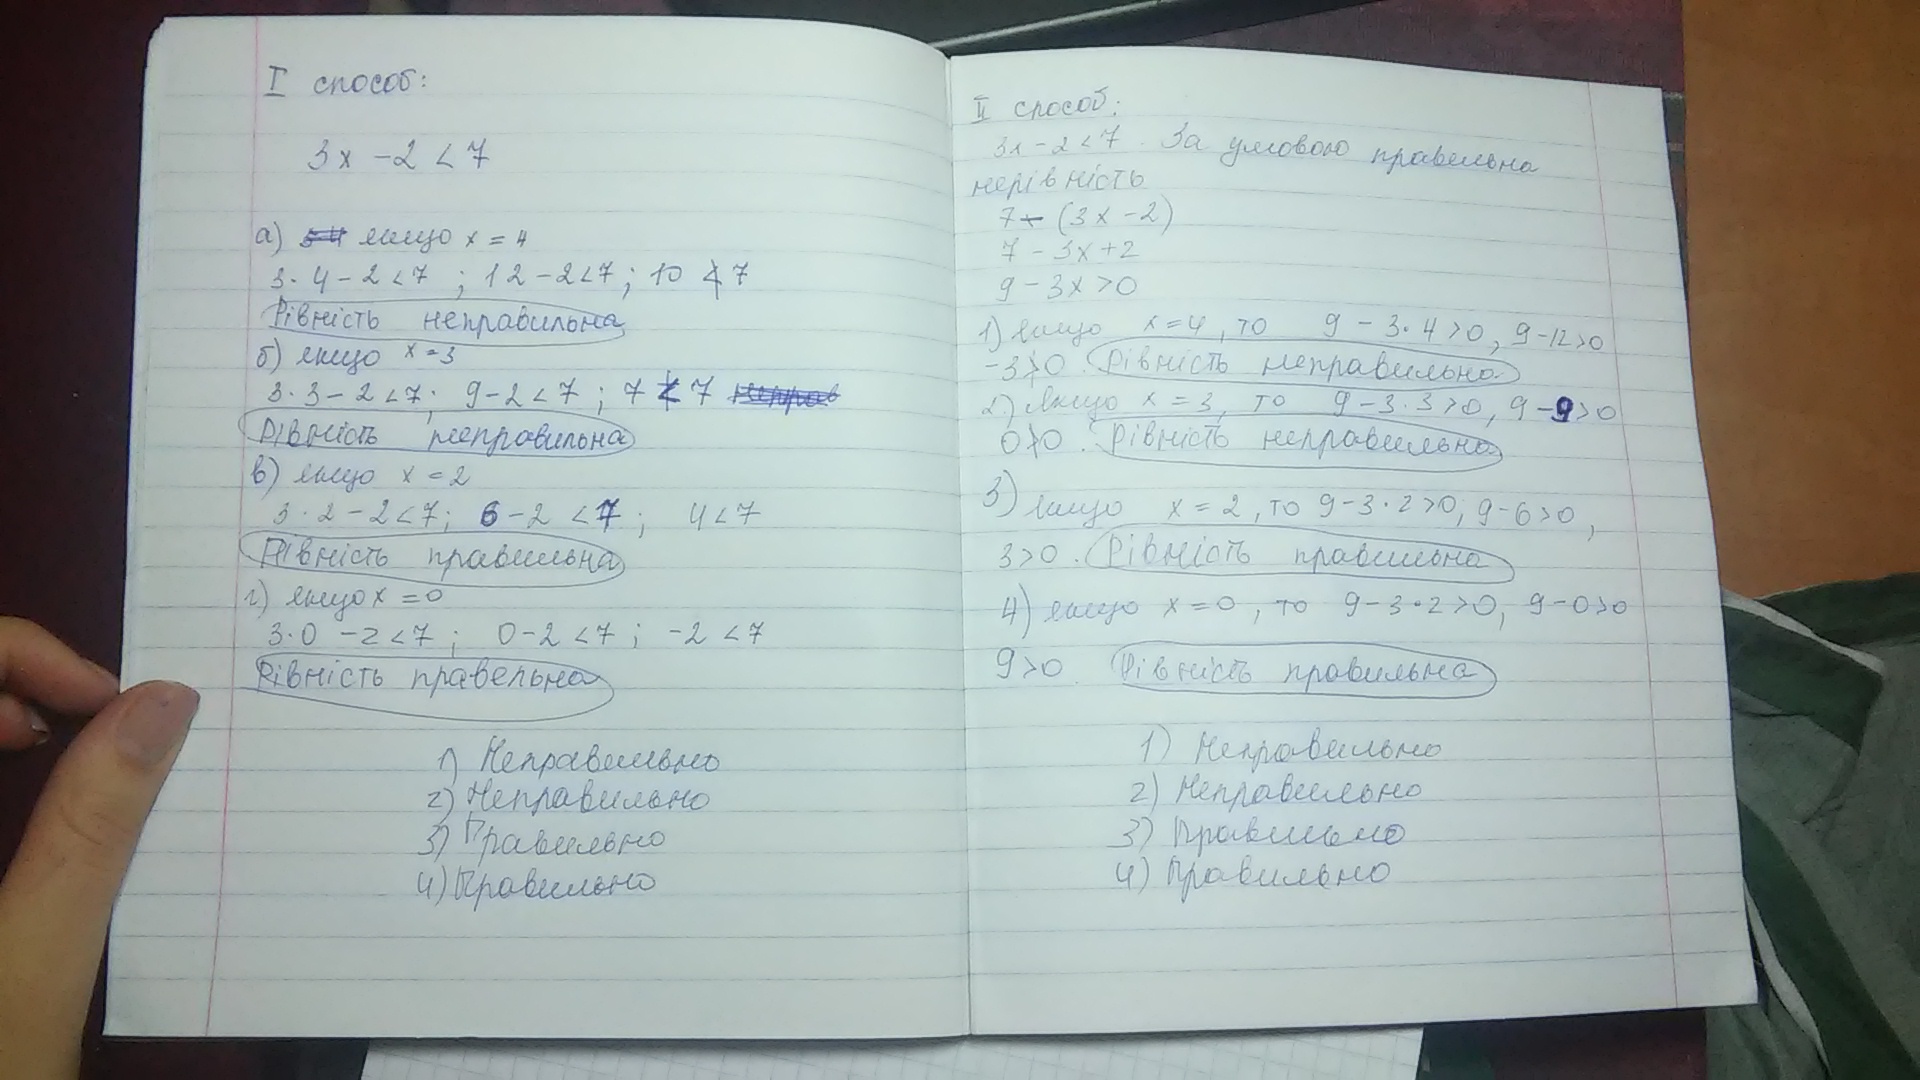 I спосіб:
3x - 2 < 7
а) якщо x = 4
3·4 - 2 < 7 ; 12 - 2 < 7 ; 10 ≮ 7
Рівність неправильна
б) якщо x = 3
3·3 - 2 < 7; 9 - 2 < 7 ; 7 ≮ 7
Рівність неправильна
в) якщо x = 2
3·2 - 2 < 7; 6 - 2 < 7 ; 4 < 7
Рівність правильна
г) якщо x = 0
3·0 - 2 < 7 ; 0 - 2 < 7 ; -2 < 7
Рівність правельна
1) Неправильно
2) Неправильно
3) Правильно
4) Правильно
II спосіб:
3x - 2 < 7. За умовою правильна
нерівність
7 - (3x - 2)
7 - 3x + 2
9 - 3x > 0
1) якщо x = 4, то 9 - 3·4 > 0, 9 - 12 > 0
-3 ≯ 0. Рівність неправильно
2) якщо x = 3, то 9 - 3·3 > 0, 9 - 9 > 0
0 ≯ 0. Рівність неправильно
3) якщо x = 2, то 9 - 3·2 > 0, 9 - 6 > 0,
3 > 0. Рівність правильна
4) якщо x = 0, то 9 - 3·2 > 0, 9 - 0 > 0
9 > 0. Рівність правильна
1) Неправильно
2) Неправильно
3) Правильно
4) Правильно